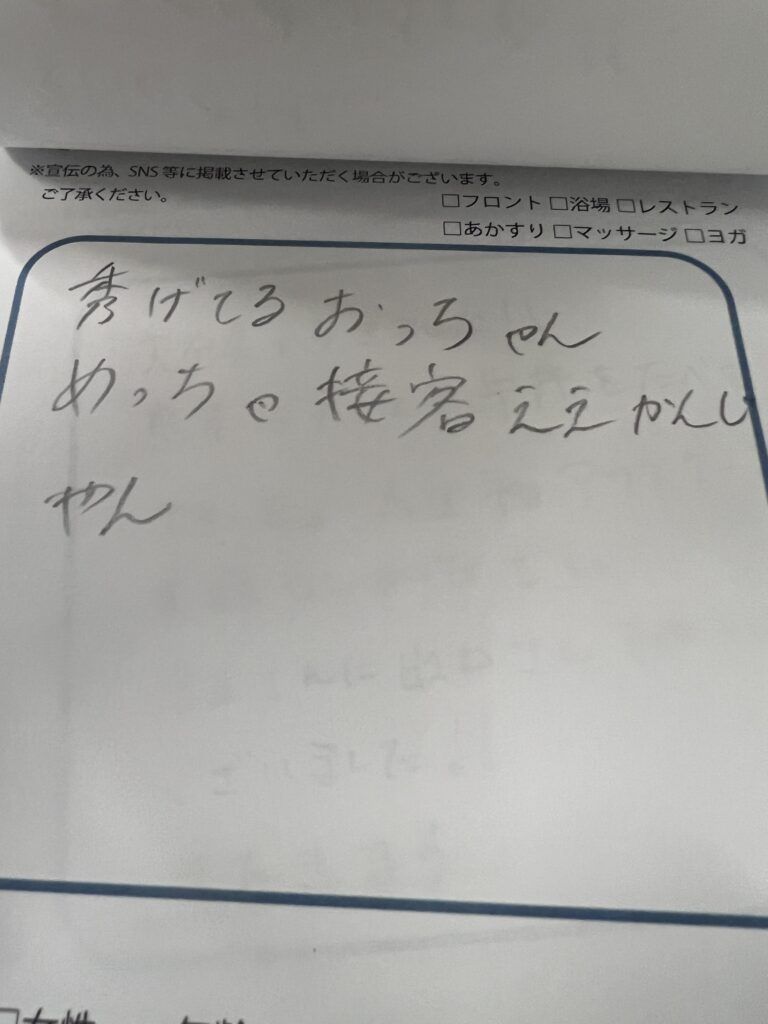 ※宣伝の為、SNS等に掲載させていただく場合がございます。
ご了承ください。
□フロント □浴場 □レストラン
□あかすり □マッサージ □ヨガ
秀げてる おっちゃん
めっちゃ 接客 ええ かんじ
やん